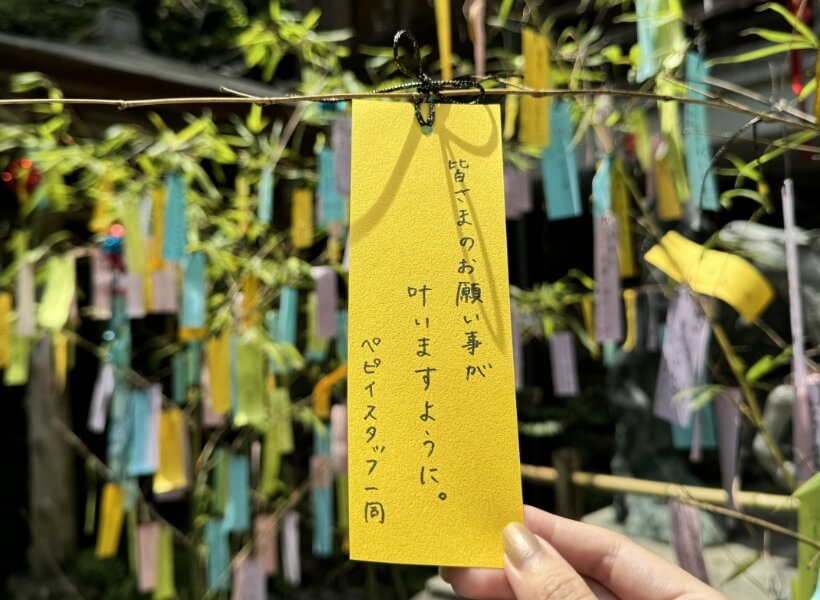 皆さまのお願い事が
叶いますように。
ペピイスタッフ一同